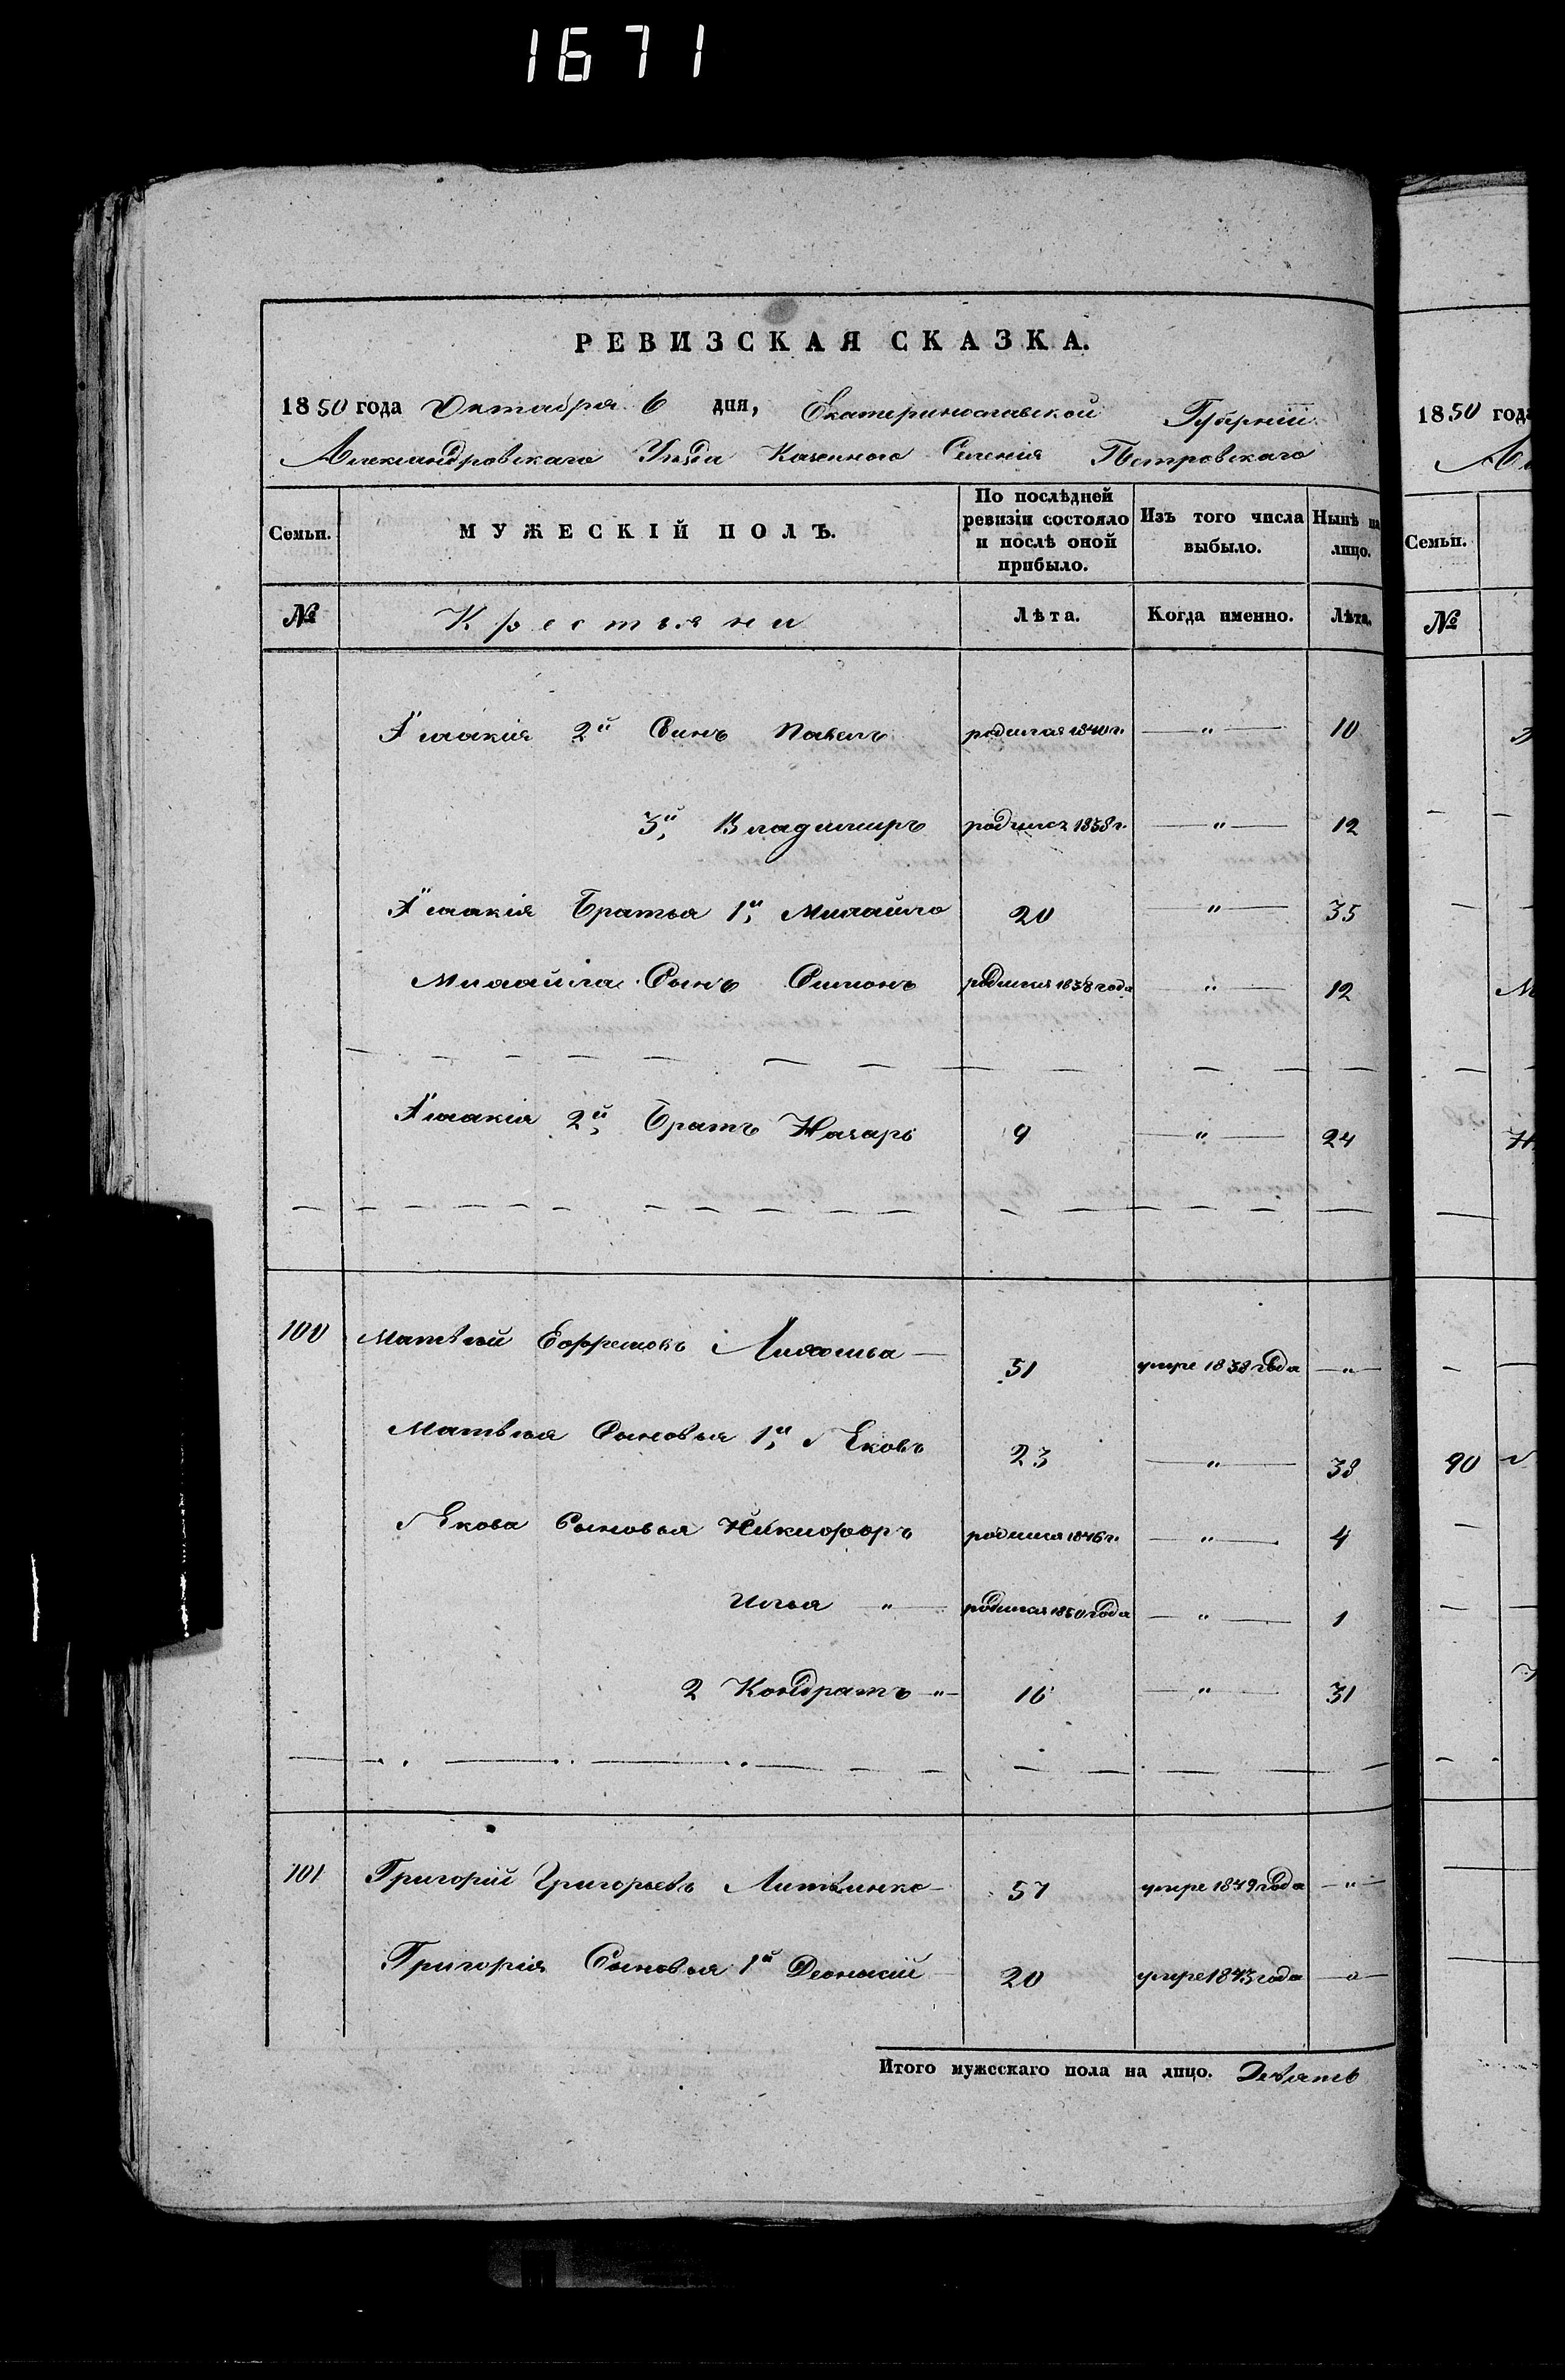 1671
РЕВИЗСКАЯ СКАЗКА.
1850 года Октября 6 дня, Екатеринославской Губерніи
Александровскаго Уѣзда Казенного Селенія Петровскаго
Семьи. МУЖЕСКІЙ ПОЛЪ. По послѣдней ревизіи состояло и послѣ оной прибыло. Изъ того числа выбыло. Нынѣ на лицо.
№ Крестьяни Лѣта. Когда именно. Лѣта.
2й Синъ Павелъ родился 1840 г. — " — 10
3й, Владимиръ родился 1838 г. — " — 12
Братья 1й, Михайло 20 — " — 35
Михайла Сынъ Симонъ родился 1838 года — " — 12
2й, Братъ Назаръ 9 — " — 24
100 Матвѣй Ефремовъ 51 умре 1838 года — " —
Матвѣя Сыновья 1й, Яковъ 23 — " — 38
Якова Сыновья Никифоръ родился 1846 г. — " — 4
Илья " — родился 1850 года — " — 1
2 Кондратъ — " — 16 — " — 31
101 Григорій Григорьевъ Литвинко — 57 умре 1849 года — " —
Григорія Сыновья 1й 20 умре 1843 года — " —
Итого мужескаго пола на лицо. Девять
1850 года
Семьи.
№
90